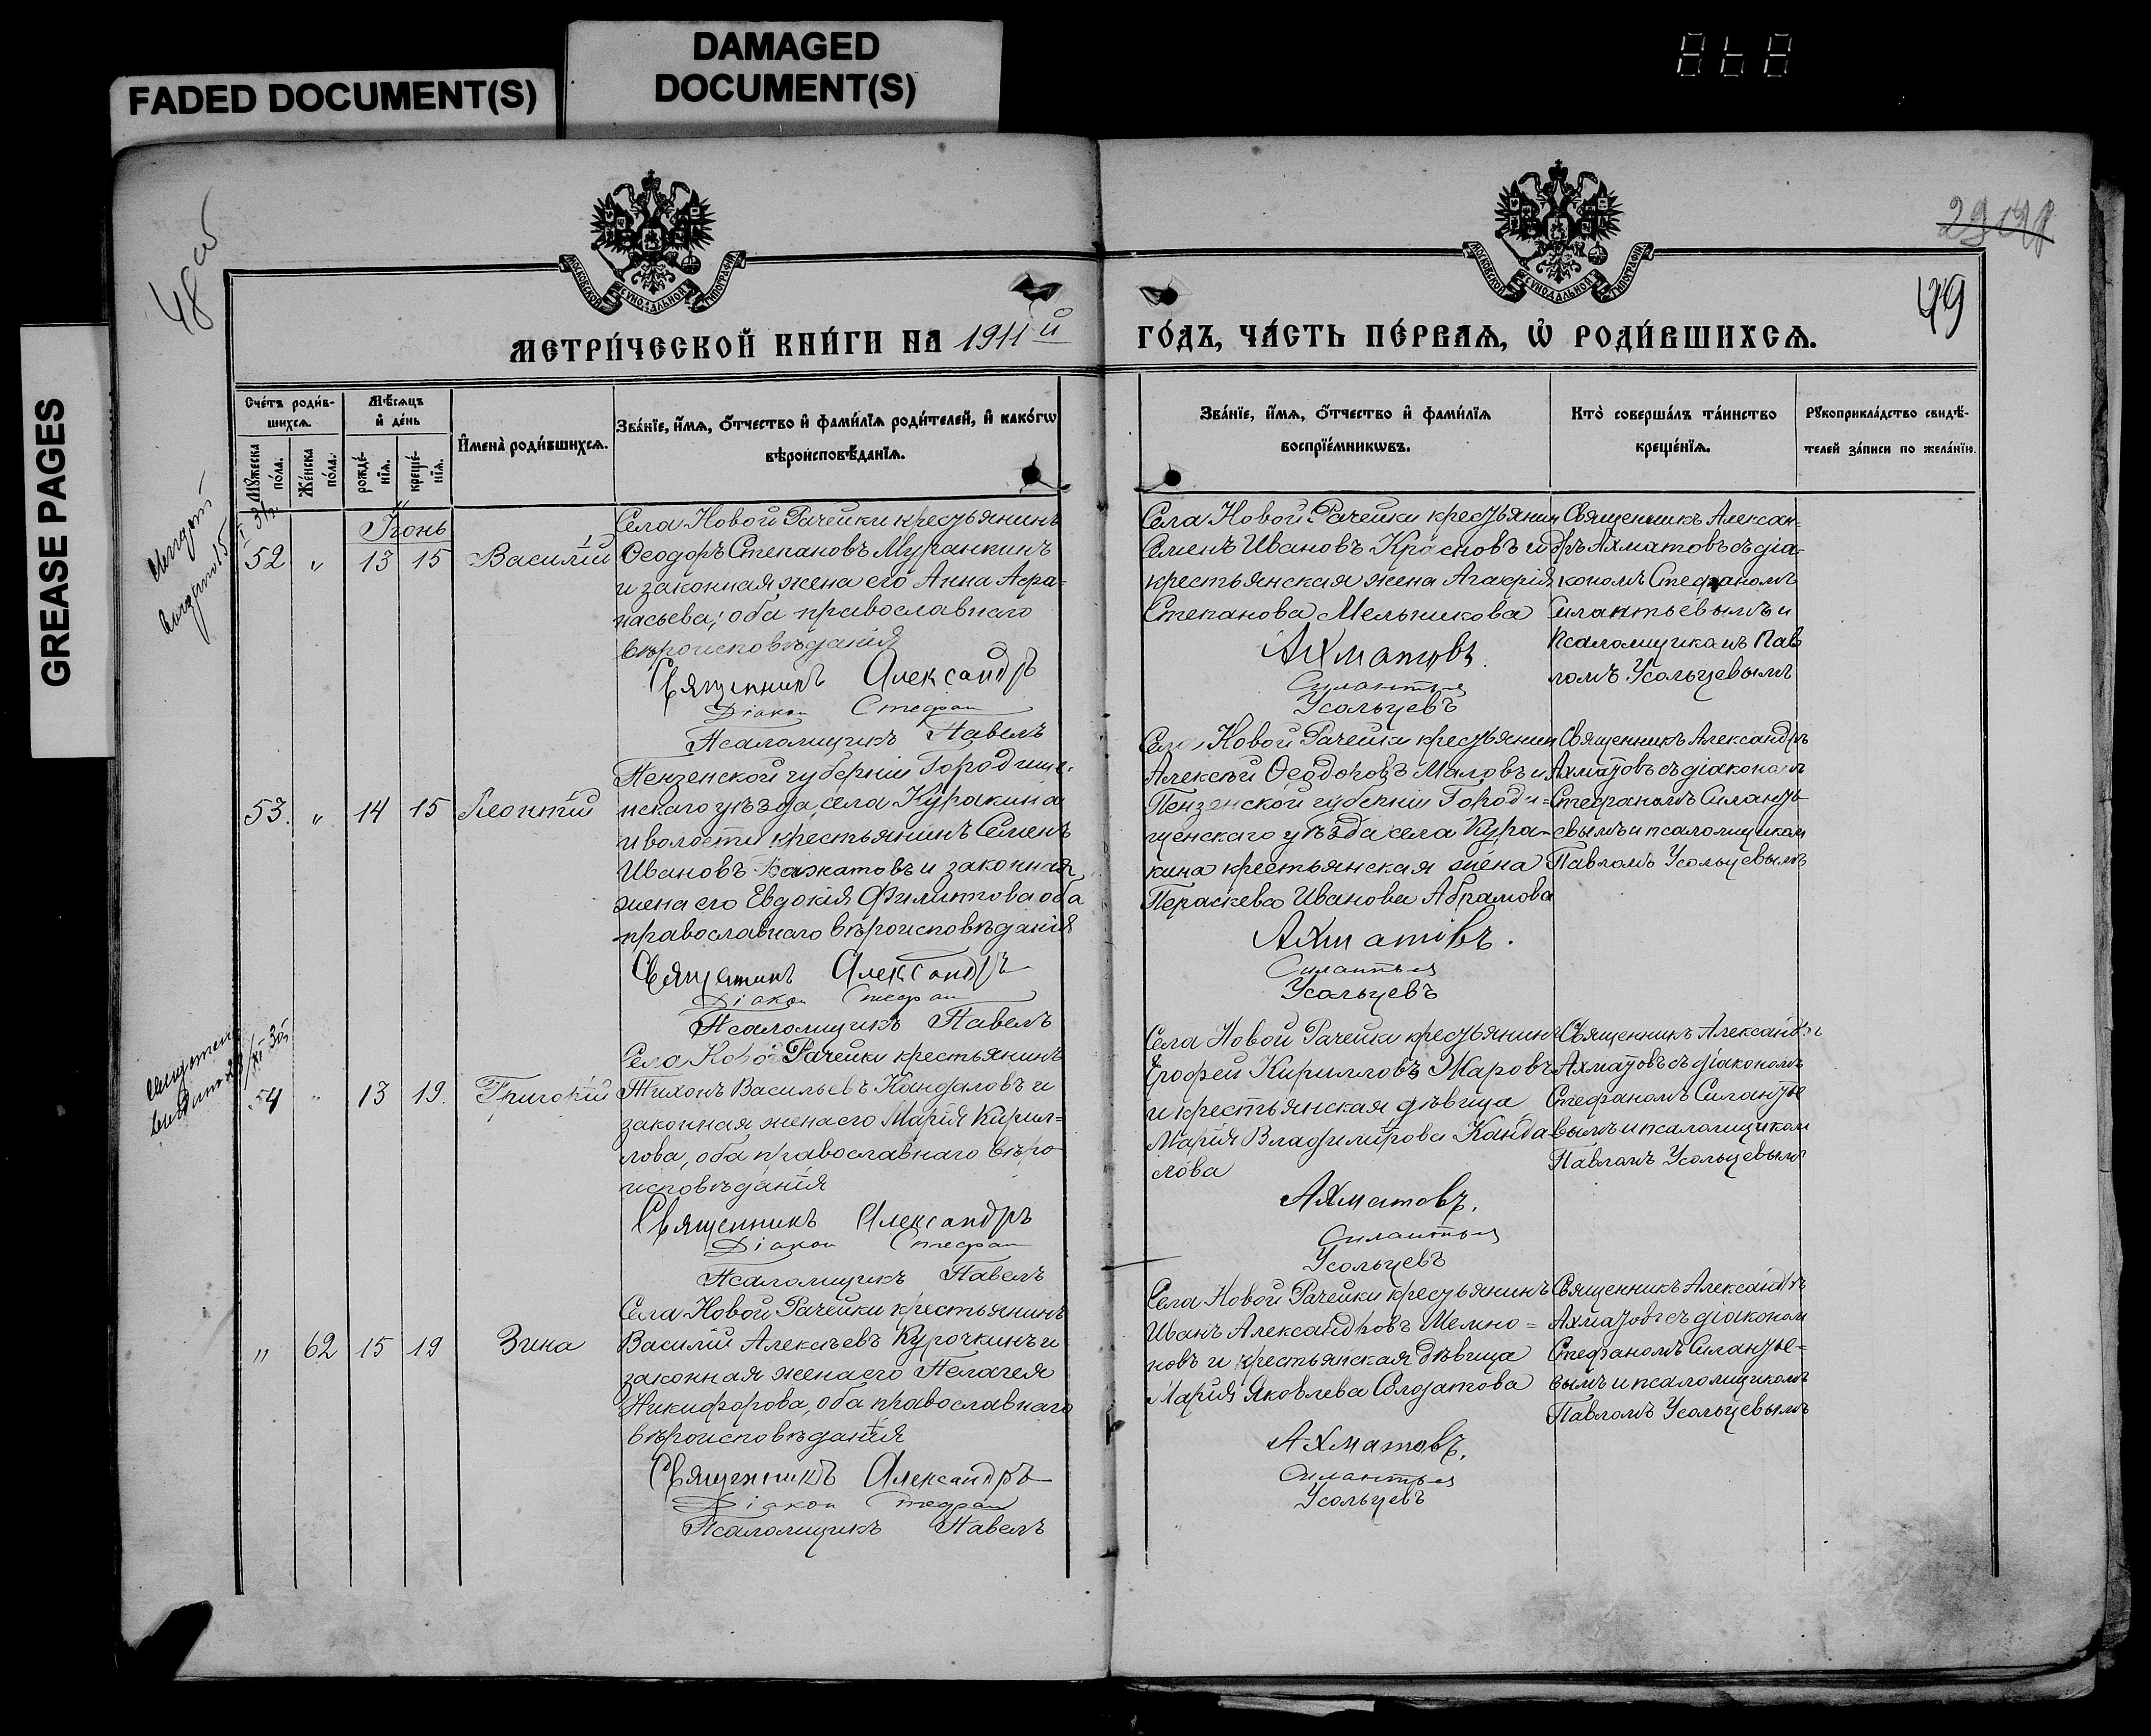 FADED DOCUMENT(S)
DAMAGED
DOCUMENT(S)
GREASE PAGES
48 об
49
МОСКОВСКОЙ СѴНОДАЛЬНОЙ ТИПОГРАФІИ
МОСКОВСКОЙ СѴНОДАЛЬНОЙ ТИПОГРАФІИ
МЕТРИ́ЧЕСКОЙ КНИ́ГИ НА 1911й
ГО́ДЪ, ЧА́СТЬ ПЕ́РВАѦ, Ѡ҆ РОДИ́ВШИХСѦ.
Сче́тъ роди́в-
шихсѧ.
Мꙋ́жеска по́ла.
Же́нска по́ла.
Мѣ́сѧцъ
и҆ де́нь
рожде́-
нїѧ.
креще́-
нїѧ.
И҆мена̀ роди́вшихсѧ.
Зва́нїе, и҆́мѧ, ѻ҆́тчество и҆ фами́лїѧ роди́телей, и҆ како́гѡ
вѣроисповѣ́данїѧ.
Зва́нїе, и҆́мѧ, ѻ҆́тчество и҆ фами́лїѧ
воспрїе́мникѡвъ.
Кто̀ соверша́лъ та́инство
креще́нїѧ.
Рꙋкоприкла́дство свидѣ́-
телей за́писи по жела́нїю.
Іюнь
52 " 13 15 Василій
Села Новой Рачейки крестьянинъ
Ѳеодоръ Степановъ Муранкинъ
и законная жена его Анна Афа-
насьева; оба православнаго
вѣроисповѣданія
Священникъ Александръ
Діакон Стефан
Псаломщикъ Павелъ
Села Новой Рачейки крестьянин
Семенъ Ивановъ Красновъ и
крестьянская жена Агафія
Степанова Мельникова
Ахматовъ.
Силантьев
Усольцевъ
Священникъ Алексан-
дръ Ахматовъ съ діа-
кономъ Стефаномъ
Силантьевымъ и
псаломщикомъ Пав
ломъ Усольцевымъ
53. " 14 15 Леонтій
Пензенской губерніи Городище-
нскаго уѣзда, села Куракина
и волости крестьянинъ Семенъ
Ивановъ и законная
жена его Евдокія Филиппова оба
православнаго вѣроисповѣданія
Священникъ Александръ
Діакон Стефан
Псаломщикъ Павелъ
Села Новой Рачейки крестьянин
Алексѣй Ѳеодоровъ Маловъ и
Пензенской губерніи Городи-
щенскаго уѣзда села Кура-
кина крестьянская жена
Параскева Иванова Абрамова
Ахматовъ.
Силантьев
Усольцевъ
Священникъ Александръ
Ахматовъ съ діакономъ
Стефаномъ Силанть
евымъ и псаломщиком
Павломъ Усольцевымъ
54 " 13 19. Григорій
Села Новой Рачейки крестьянинъ
Тихонъ Васильевъ Кандаловъ и
законная жена его Марія Кирил-
лова, оба православнаго вѣро
исповѣданія
Священникъ Александръ
Діакон Стефан
Псаломщикъ Павелъ
Села Новой Рачейки крестьянинъ
Ерофей Кирилловъ Жаровъ
и крестьянская дѣвица
Марія Владимірова Канда-
лова
Ахматовъ.
Силантьев
Усольцевъ
Священникъ Александръ
Ахматовъ съ діакономъ
Стефаномъ Силантье
вымъ и псаломщиком
Павломъ Усольцевымъ
" 62 15 19 Зина
Села Новой Рачейки крестьянинъ
Василій Алексѣевъ Курочкинъ и
законная жена его Пелагея
Никифорова, оба православнаго
вѣроисповѣданія
Священникъ Александръ
Діакон Стефан
Псаломщикъ Павелъ
Села Новой Рачейки крестьянинъ
Иванъ Александровъ
и крестьянская дѣвица
Марія Яковлева
Ахматовъ.
Силантьев
Усольцевъ
Священникъ Александръ
Ахматовъ съ діаконом
Стефаномъ Силантье-
вымъ и псаломщикомъ
Павломъ Усольцевымъ